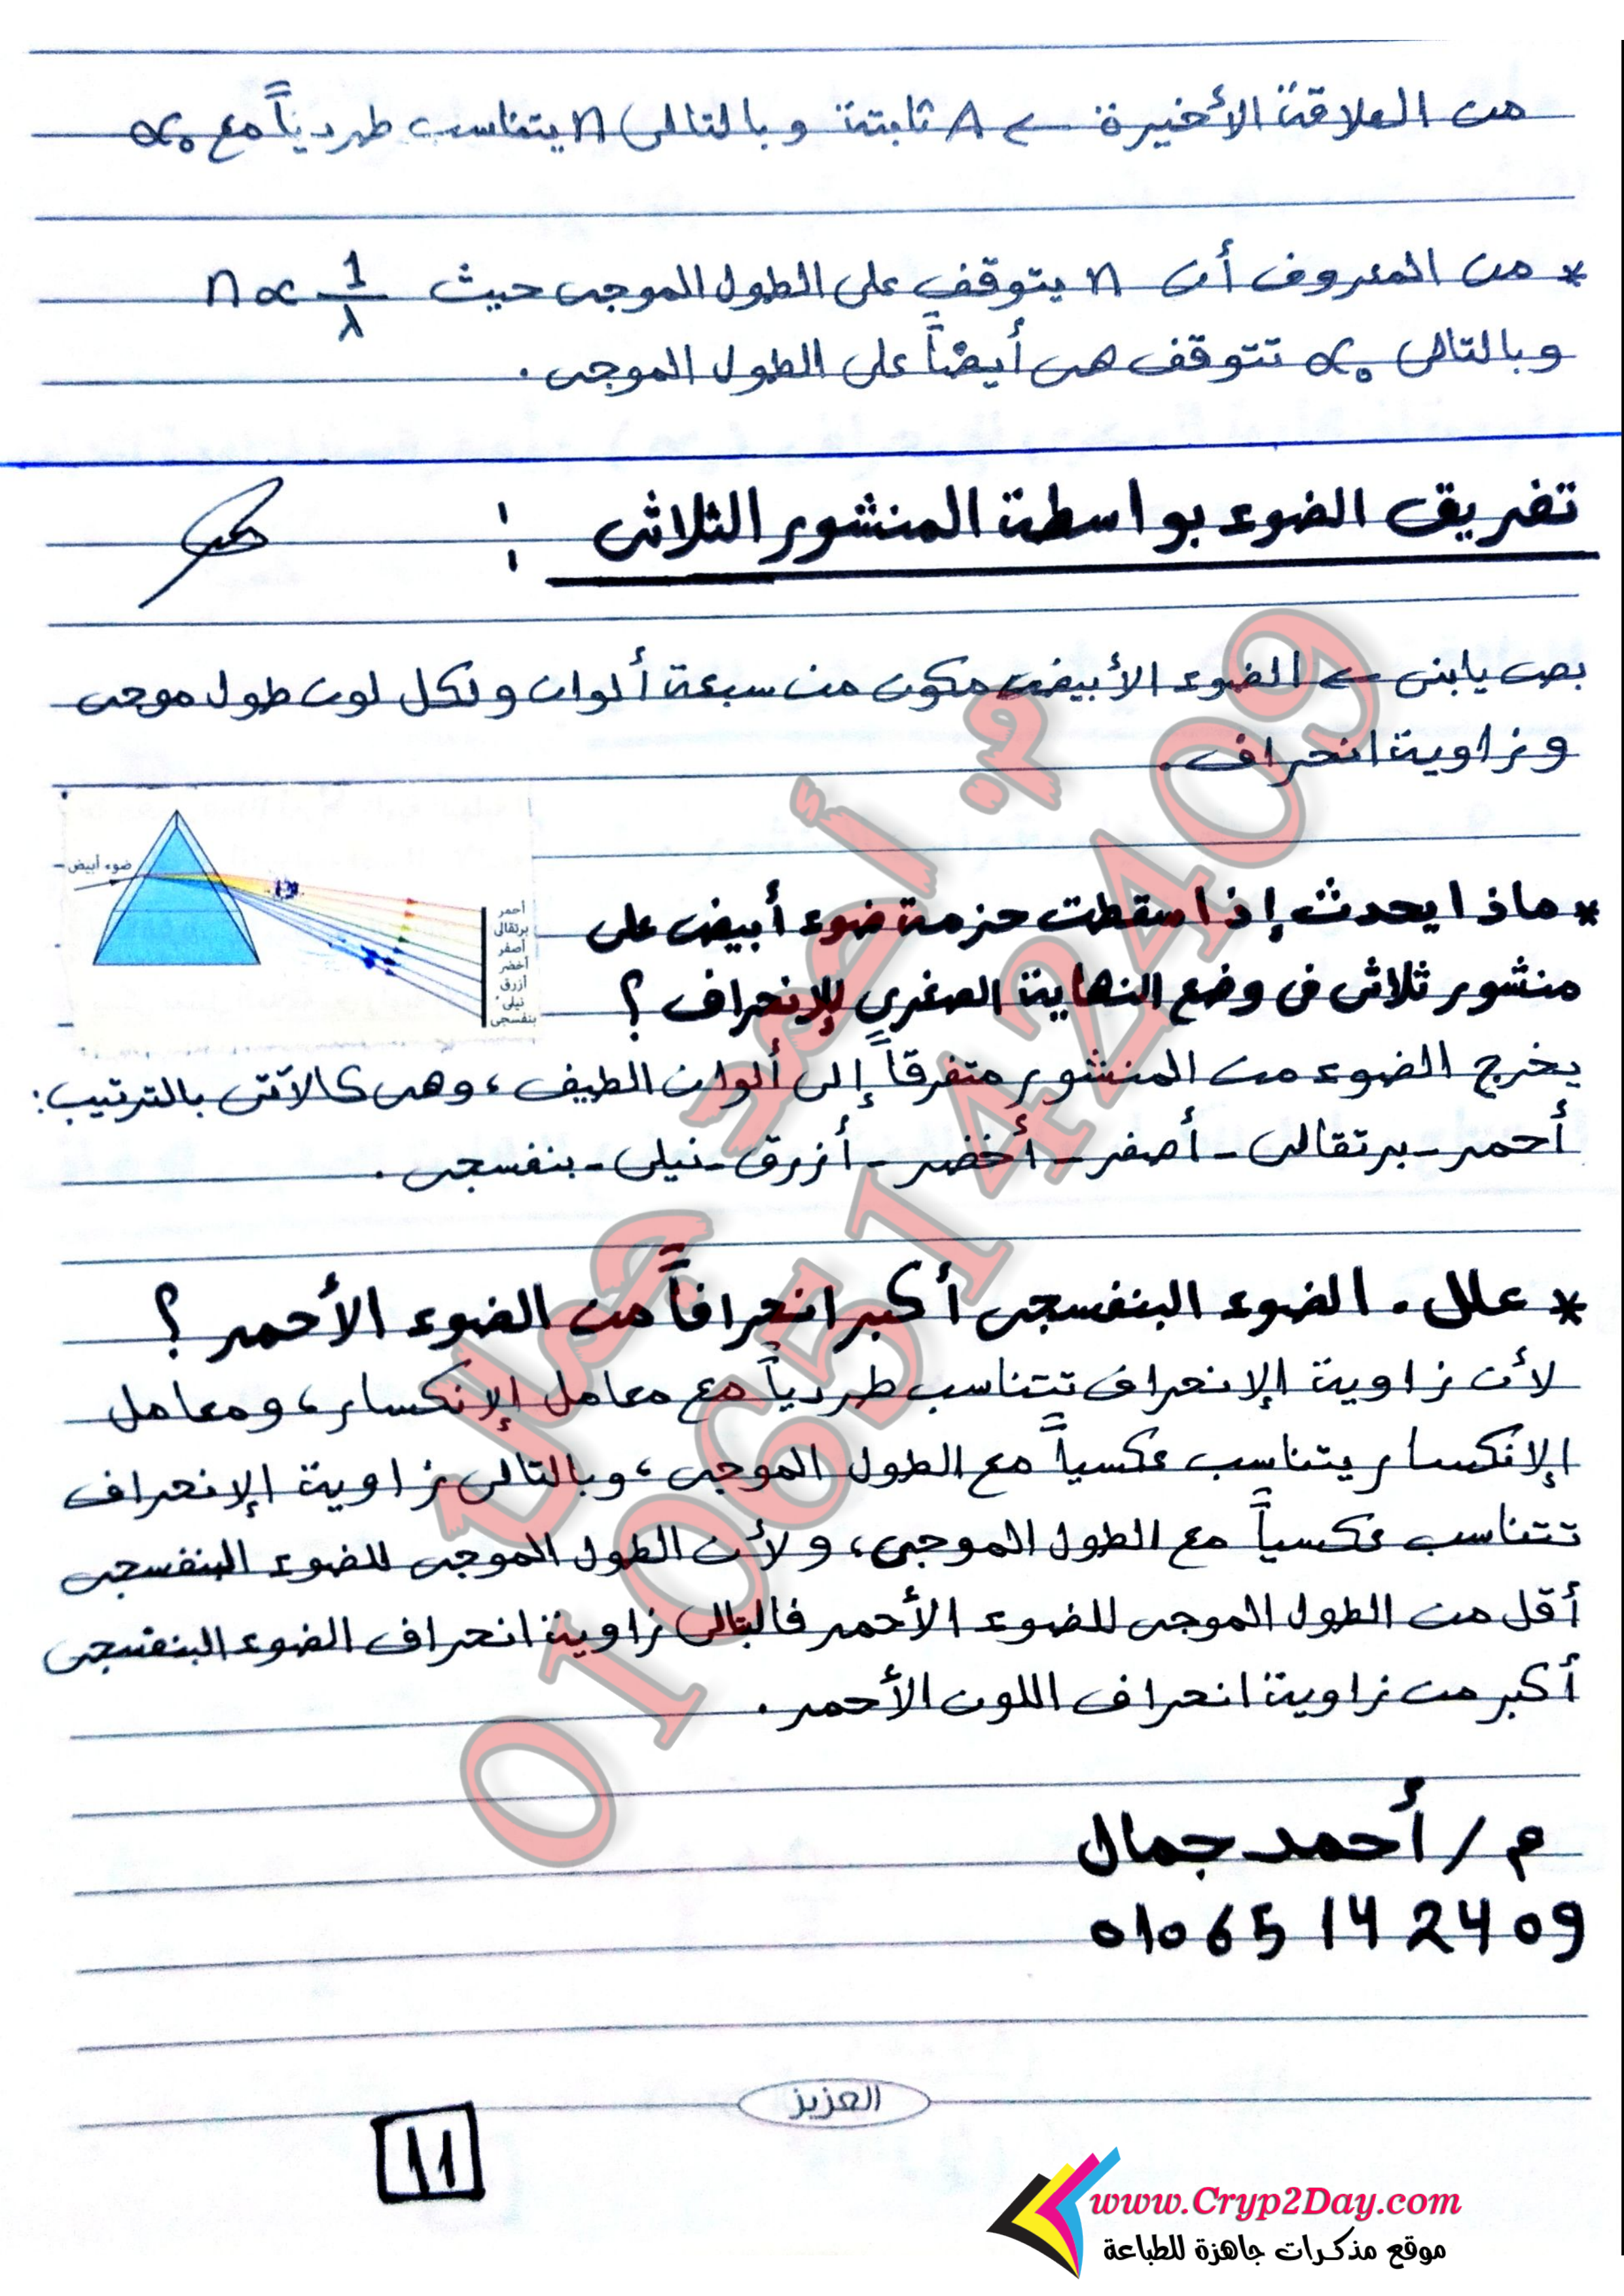 من العلاقة الأخيرة ← A ثابتة وبالتالى n يتناسب طردياً مع α₀
* من المعروف أن n يتوقف على الطول الموجى حيث n ∝ 1/λ
وبالتالى α₀ تتوقف هى أيضاً على الطول الموجى .
تفريق الضوء بواسطة المنشور الثلاثى :
بص يابنى ← الضوء الأبيض مكون من سبعة ألوان ولكل لون طول موجى
وزاوية انحراف .
ضوء أبيض
أحمر
برتقالى
أصفر
أخضر
أزرق
نيلى
بنفسجى
* ماذا يحدث إذا سقطت حزمة ضوء أبيض على
منشور ثلاثى فى وضع النهاية الصغري للإنحراف ؟
يخرج الضوء من المنشور متفرقاً إلى ألوان الطيف ، وهى كالآتى بالترتيب :
أحمر - برتقالى - أصفر - أخضر - أزرق - نيلى - بنفسجى .
* علل . الضوء البنفسجى أكبر انحرافاً من الضوء الأحمر ؟
لأن زاوية الإنحراف تتناسب طردياً مع معامل الإنكسار ، ومعامل
الإنكسار يتناسب عكسياً مع الطول الموجى ، وبالتالى زاوية الإنحراف
تتناسب عكسياً مع الطول الموجى ، ولأن الطول الموجى للضوء البنفسجى
أقل من الطول الموجى للضوء الأحمر فالبتالى زاوية انحراف الضوء البنفسجى
أكبر من زاوية انحراف اللون الأحمر .
م. أحمد جمال
01065142409
م / أحمد جمال
01065142409
العزيز
11
www.Cryp2Day.com
موقع مذكرات جاهزة للطباعة